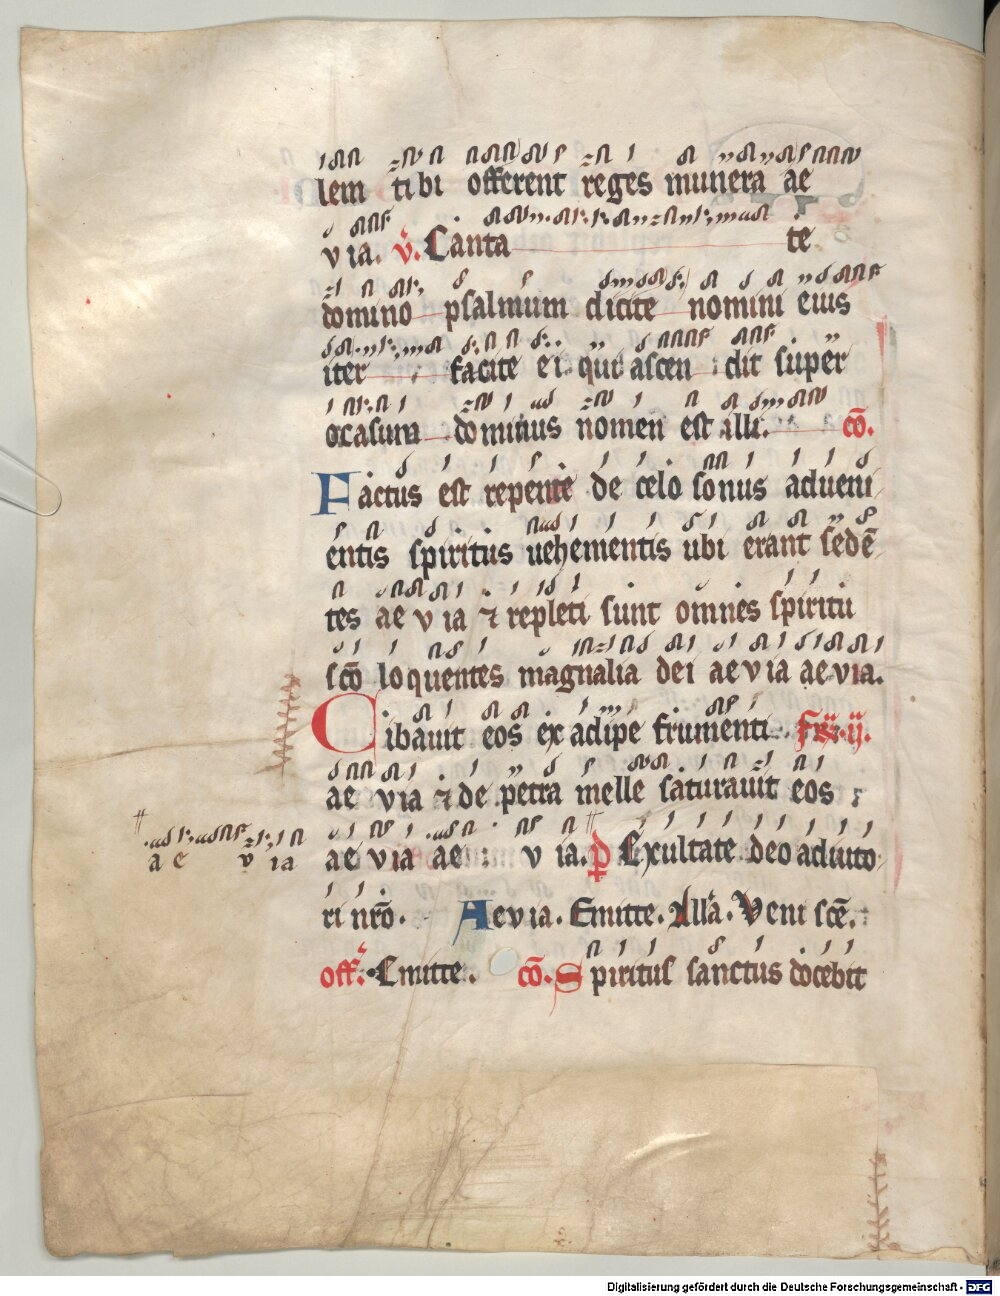 lem tibi offerent reges munera ae
via. v̄. Canta te
domino psalmum dicite nomini eius
iter facite ei qui ascen dit super
occasum dominus nomen est illi. cō.
Factus est repente de celo sonus adueni
entis spiritus uehementis ubi erant sedē
tes ae v ia ⁊ repleti sunt omnes spiritu
scō loquentes magnalia dei ae v ia ae via.
Cibauit eos ex adipe frumenti.
ae via ⁊ de petra melle saturauit eos
ae via ae v ia. p Exultate deo adiuto
ae v ia
ri nrō. Aevia. Emitte. Alla. Veni scē.
off. Emitte. cō. Spiritus sanctus docebit
Digitalisierung gefördert durch die Deutsche Forschungsgemeinschaft - DFG